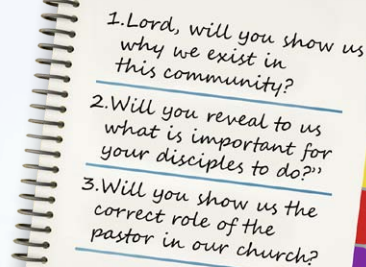 1.Lord, will you show us
why we exist in
this community?
2.Will you reveal to us
what is important for
your disciples to do?”
3.Will you show us the
correct role of the
pastor in our church?